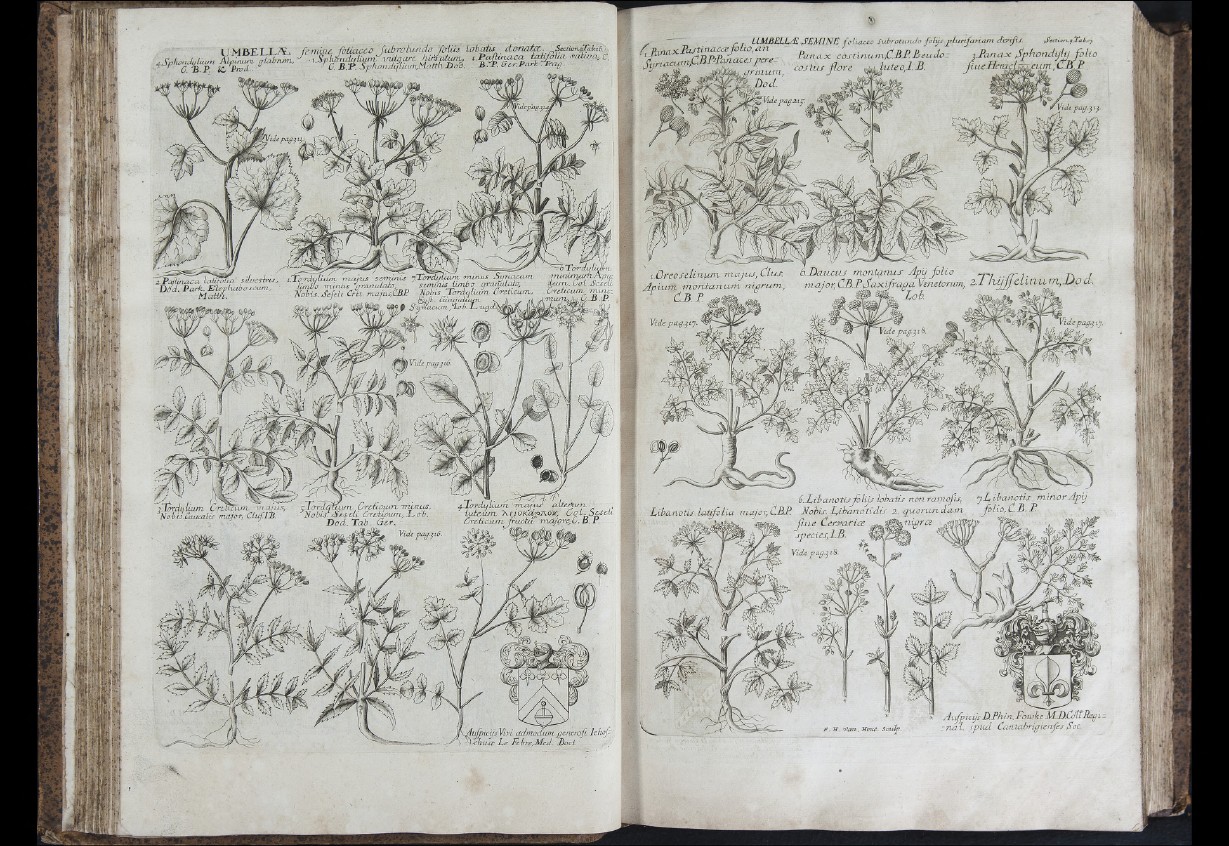 UMBELLÆ, semine foliaceo subrotundo foliis lobatis donatæ. Section
4 Sphondylium Alpinum glabrum,
C. B. P. & Prod.
Sphondylium vulgare hirsutum,
C. B. P. Sphondylium, Matth. Dod.
1 Pastinaca latifolia sativa, C.
B. P. Ger. Park. Trag.
Vide pag.
Vide pag.
2 Pastinaca latifolia silvestris,
Dod. Park. Elaphoboscum,
Matth.
1. Tordylium majus seminis
limbo minus granulato,
Nobis. Seseli Cret. majus, C.B.P.
Tordylium minus
seminis limbo granulato,
Nobis Tordylium Creticum,
6 Tordylium
minimum
C. B. P.
Vide pag. 316
Tordylium Creticum majus,
Nobis Caucalis major, Clus. I.B.
Tordylium Creticum minus,
Nobis. Seseli Creticum, Lob.
Dod. Tab. Ger.
4 Tordylium majus alterum
luteum Col. Seseli
Creticum fructu majore, C. B. P.
Vide pag. 316
Auspiciis Viri admodum generosi
Le Febre Med. Doct.
UMBELLÆ, SEMINE foliaceo subrotundo foliis plurifariam densis. Section
1 Panax Pastinacæ folio, an
Syriacum, C.B.P. Panaces pere-
grinum,
Dod.
Vide pag. 315
Panax costinum, C.B.P. Pseudo-
costus flore luteo, I.B.
3 Panax Sphondylij folio
sive Heracleum, C.B.P.
Vide pag.
1. Oreoselinum majus, Clus.
Apium montanum nigrum,
C. B. P.
Vide pag. 317.
6. Daucus montanus Apij folio
major, C.B.P. Saxifraga Venetorum,
Lob.
Vide pag. 318.
2. Thysselinum, Dod.
Vide pag. 317.
Libanotis latifolia major, C.B.P.
6. Libanotis foliis lobatis non ramosis,
Nobis. Libanotidis 2. quorundam
sive Cervariæ nigræ
species, I.B.
Vide pag. 318.
7 Libanotis minor Apij
folio, C. B. P.
F. H. Van. Hove. Sculp.
Auspiciis D. Phin. Fowke M. D. Coll. Regi-
nal. apud Cantabrigienses Soc.